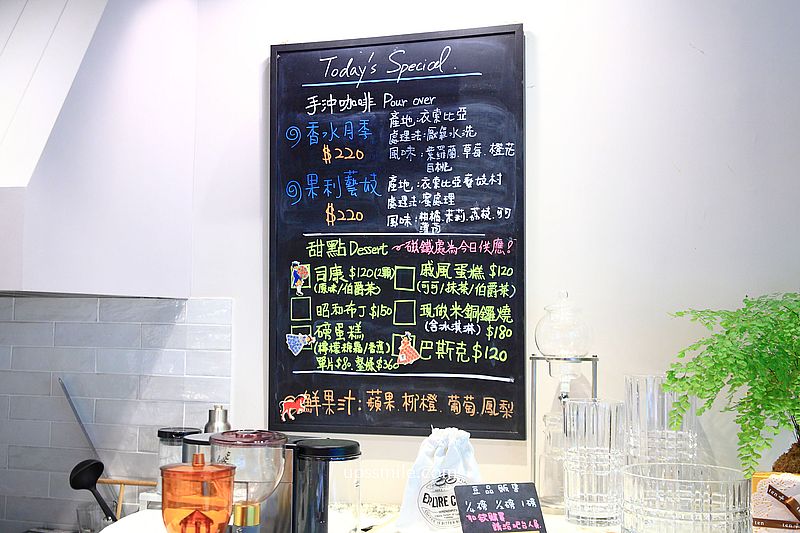 Today's Special.
手沖咖啡 Pour over
香水月季
$220
產地:衣索比亞
處理法:厭氧水洗
風味:紫羅蘭.草莓.橙花
白桃
果利藝妓
$220
產地:衣索比亞藝妓村
處理法:蜜處理
風味:柑橘.茉莉.荔枝.可可
甜點 Dessert ~磁鐵處為今日供應!
司康 $120(2顆)
(原味/伯爵茶)
戚風蛋糕 $120
(可可/抹茶/伯爵茶)
昭和布丁 $150
現做米銅鑼燒
(含冰淇淋) $180
磅蛋糕
單片$80.整條$360
巴斯克 $120
鮮果汁:蘋果.柳橙.葡萄.鳳梨
upssmile.com
EXPLORE
豆品販售
1/4磅 1/2磅 1磅
如欲購買
請洽吧台人員
ten